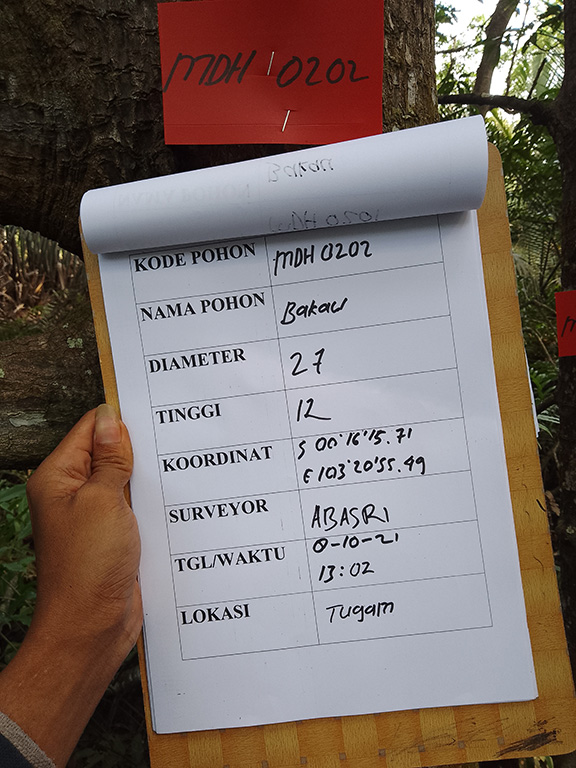 MDH 0202
Bakau
MDH 0201
KODE POHON MDH 0202
NAMA POHON Bakau
DIAMETER 27
TINGGI 12
KOORDINAT S 00°16'15.71
E 103°20'55.49
SURVEYOR ABASRI
TGL/WAKTU 0-10-21
13:02
LOKASI Tugam